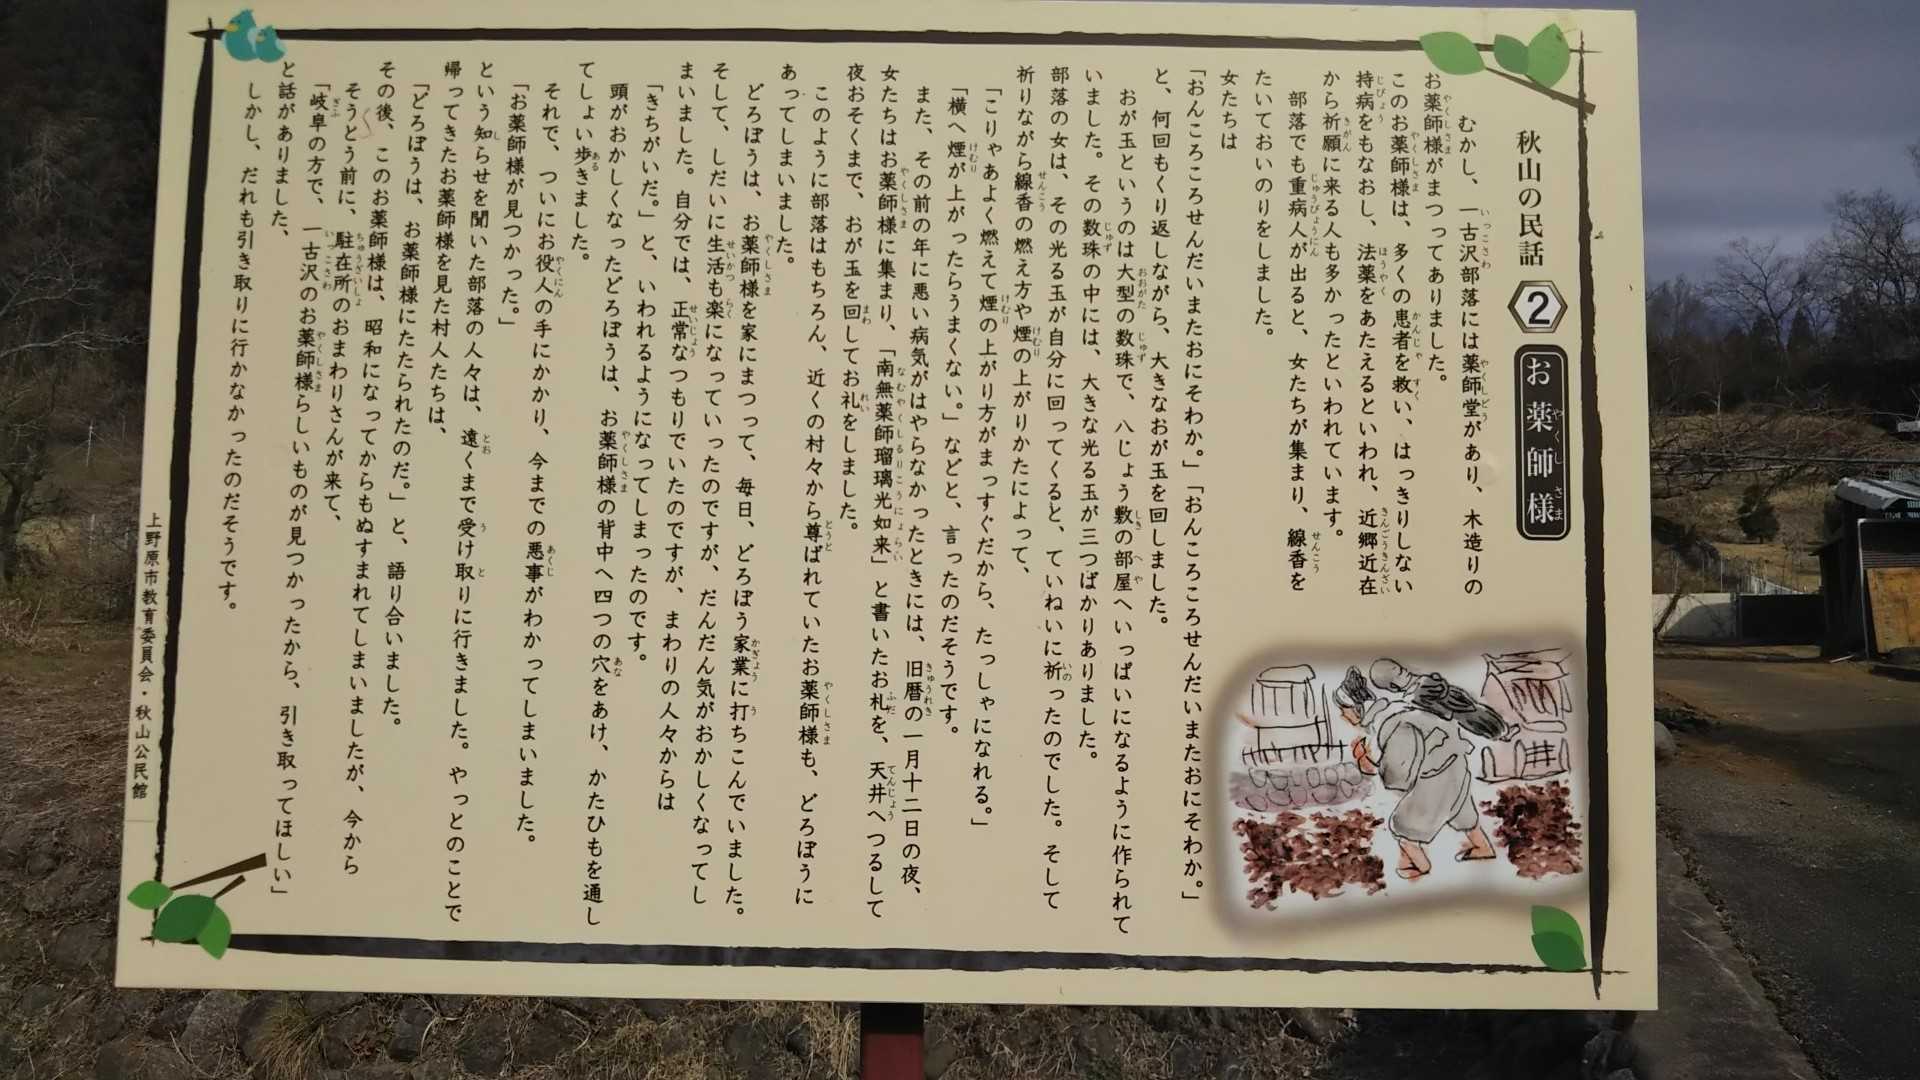 秋山の民話 2 お薬師様
むかし、一古沢部落には薬師堂があり、木造りの
お薬師様がまつってありました。
このお薬師様は、多くの患者を救い、はっきりしない
持病をもなおし、法薬をあたえるといわれ、近郷近在
から祈願に来る人も多かったといわれています。
部落でも重病人が出ると、女たちが集まり、線香を
たいておいのりをしました。
女たちは
「おんころころせんだいまたおにそわか。」「おんころころせんだいまたおにそわか。」
と、何回もくり返しながら、大きなおが玉を回しました。
おが玉というのは大型の数珠で、八じょう敷の部屋へいっぱいになるように作られて
いました。その数珠の中には、大きな光る玉が三つばかりありました。
部落の女は、その光る玉が自分に回ってくると、ていねいに祈ったのでした。そして
祈りながら線香の燃え方や煙の上がりかたによって、
「こりゃあよく燃えて煙の上がり方がまっすぐだから、たっしゃになれる。」
「横へ煙が上がったらうまくない。」などと、言ったのだそうです。
また、その前の年に悪い病気がはやらなかったときには、旧暦の一月十二日の夜、
女たちはお薬師様に集まり、「南無薬師瑠璃光如来」と書いたお札を、天井へつるして
夜おそくまで、おが玉を回してお礼をしました。
このように部落はもちろん、近くの村々から尊ばれていたお薬師様も、どろぼうに
あってしまいました。
どろぼうは、お薬師様を家にまつって、毎日、どろぼう家業に打ちこんでいました。
そして、しだいに生活も楽になっていったのですが、だんだん気がおかしくなってし
まいました。自分では、正常なつもりでいたのですが、まわりの人々からは
「きちがいだ。」と、いわれるようになってしまったのです。
頭がおかしくなったどろぼうは、お薬師様の背中へ四つの穴をあけ、かたひもを通し
てしょい歩きました。
それで、ついにお役人の手にかかり、今までの悪事がわかってしまいました。
「お薬師様が見つかった。」
という知らせを聞いた部落の人々は、遠くまで受け取りに行きました。やっとのことで
帰ってきたお薬師様を見た村人たちは、
「どろぼうは、お薬師様にたたられたのだ。」と、語り合いました。
その後、このお薬師様は、昭和になってからもぬすまれてしまいましたが、今から
そうとう前に、駐在所のおまわりさんが来て、
「岐阜の方で、一古沢のお薬師様らしいものが見つかったから、引き取ってほしい」
と話がありました、
しかし、だれも引き取りに行かなかったのだそうです。
上野原市教育委員会・秋山公民館